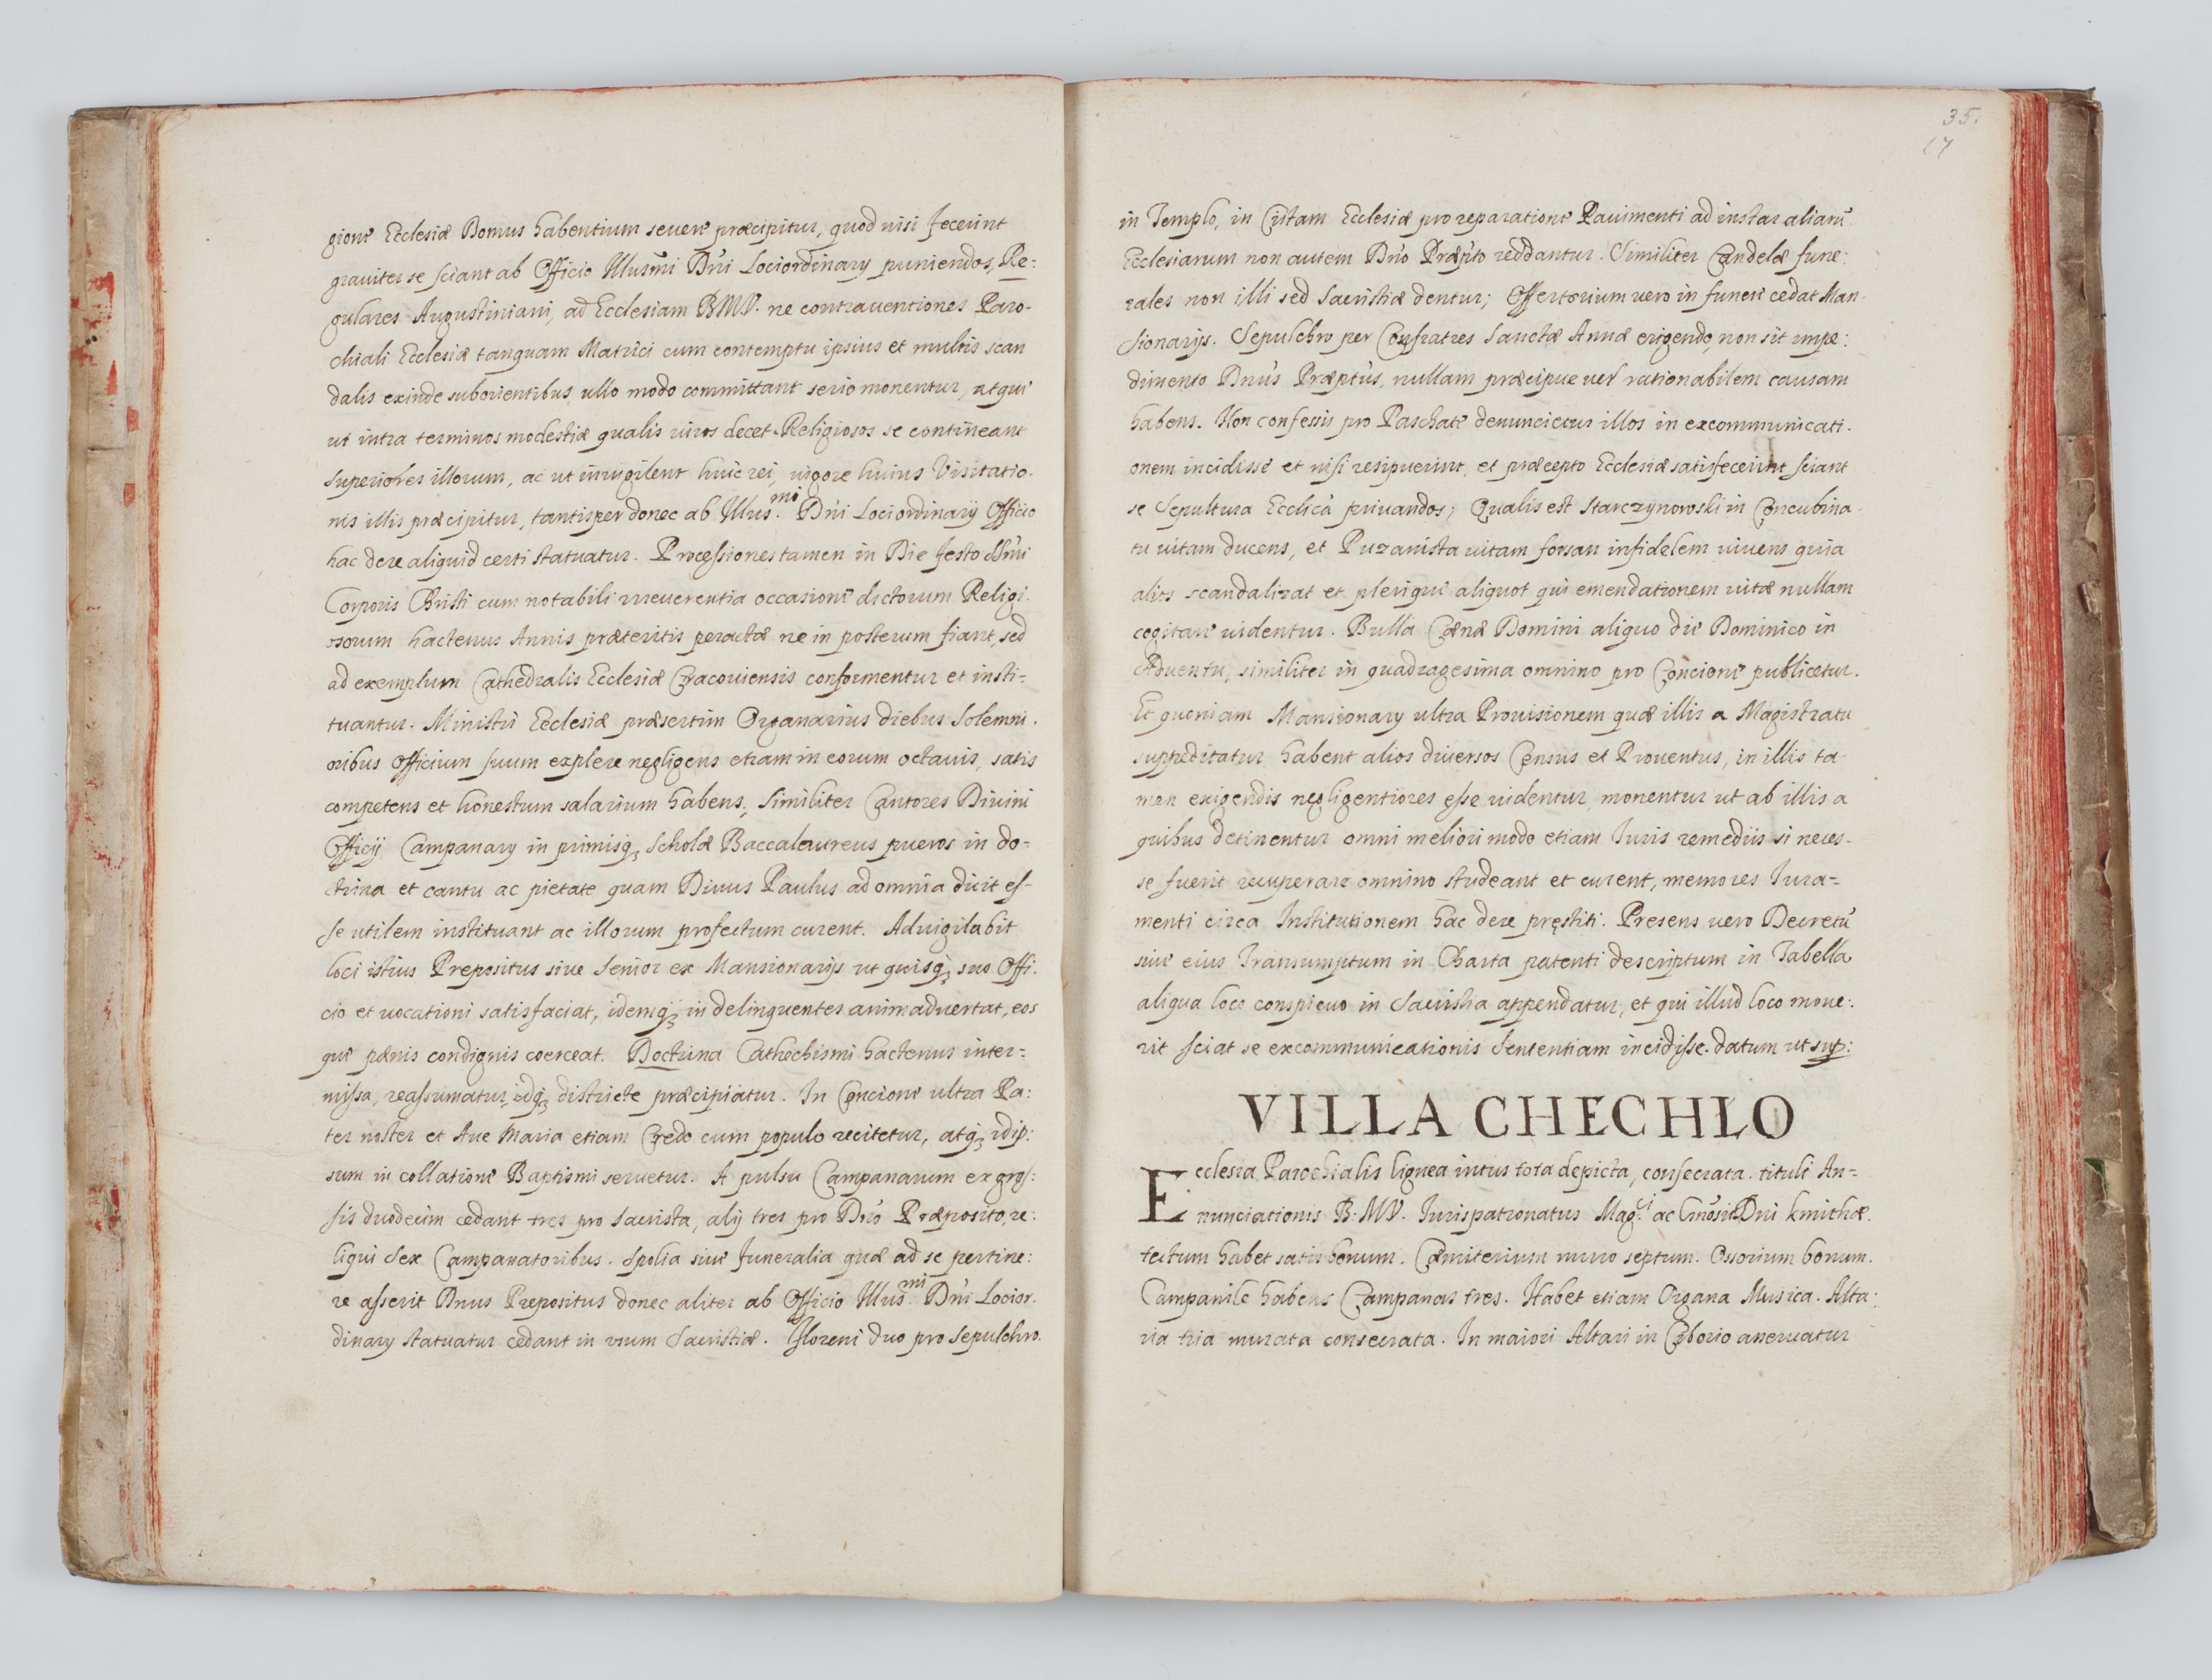 gione Ecclesiæ Domus habentium severe præcipitur, quod nisi fecerint
graviter se sciant ab Officio Illusm̃i Dñi Lociordinarÿ puniendos, Re:
gulares Augustiniani, ad Ecclesiam BMV. ne contraventiones Paro-
chiali Ecclesiæ tanquam Matrici cum contemptu ipsius et multis scan
dalis exinde suborientibus ullo modo committant serio monentur, atque
ut intra terminos modestiæ qualis viros decet Religiosos se contineant
superiores illorum, ac ut invigilent huic rei, vigore huius Visitatio-
nis illis præcipitur, tantisper donec ab Illus.mi Dñi Lociordinarÿ Officio
hac de re aliquid certi statuatur. Processiones tamen in Die festo SSm̃i
Corporis Christi cum notabili irreverentia occasione dictorum Religi-
osorum hactenus Annis præteritis peractæ ne in posterum fiant, sed
ad exemplum Cathedralis Ecclesiæ Cracoviensis conformentur et insti=
tuantur. Ministri Ecclesiæ præsertim Organarius diebus Solemni.
oribus Officium suum explere negligens etiam in eorum octavis, satis
competens et honestum salarium habens; Similiter Cantores Divini
Officij Campanarÿ in primisq; Scholæ Baccalaureus pueros in do=
ctrina et cantu ac pietate quam Divus Paulus ad omnia dicit es-
se utilem instituant ac illorum profectum curent. Advigilabit
loci istius Prepositus sive Senior ex Mansionarÿs ut quisq; suo Offi.
cio et vocationi satisfaciat, idemq; in delinquentes animadvertat, eos
que pænis condignis coerceat. Doctrina Cathechismi hactenus inter=
missa, reassumatur, idq; districte præcipiatur. In Concione ultra Pa:
ter noster et Ave Maria etiam Credo cum populo recitetur, atq; idip:
sum in collatione Baptismi servetur. A pulsu Campanarum ex gros:
sis duodecim cedant tres pro Sacrista, alÿ tres pro Dño Præposito, re:
liqui Sex Campanatoribus. Spolia sive funeralia quæ ad se pertine:
re asserit Dnus Prepositus donec aliter ab Officio Illus.mi Dñi Locior.
dinarÿ statuatur cedant in usum Sacristiæ. Floreni duo pro Sepulchro
35.
17
in Templo, in Cistam Ecclesiæ pro reparatione Pavimenti ad instar aliarũ
Ecclesiarum non autem Dño Præpi̇to reddantur. Similiter Candelæ fune:
rales non illi sed Sacristiæ dentur; Offertorium vero in funere cedat Man-
sionarÿs. Sepulchro per Confratres Sanctæ Annæ erigendo, non sit impe:
dimento Dnus Præptus, nullam præcipue vel rationabilem causam
habens. Non confessis pro Paschate denuncietur illos in excommunicati.
onem incidisse et nisi resipuerint, et præcepto Ecclesiæ satisfecerint sciant
se Sepultura Ecclica privandos; Qualis est Starczynowski in Concubina-
tu vitam ducens, et Puzanista vitam forsan infidelem vivens quia
alios scandalizat et plerique aliquot qui emendationem vitæ nullam
cogitare videntur. Bulla Cænæ Domini aliquo die Dominico in
Adventu, similiter in quadragesima omnino pro Concione publicetur.
Et quoniam Mansionarÿ ultra Provisionem quæ illis a Magistratu
suppeditatur habent alios diversos Census et Proventus, in illis ta
men exigendis negligentiores esse videntur, monentur ut ab illis a
quibus detinentur omni meliori modo etiam Iuris remediis si neces-
se fuerit recuperare omnino studeant et curent, memores Iura=
menti circa Institutionem hac de re pręstiti. Presens vero Decretũ
sive eius Transumptum in Charta patenti descriptum in Tabella
aliqua loco conspicuo in Sacristia appendatur, et qui illud loco move:
rit sciat se excommunicationis Sententiam incidisse. datum ut sup:
VILLA CHECHŁO
Ecclesia Parochialis lignea intus tota depicta, consecrata. tituli An=
nunciationis B: MV. Iurispatronatus Mag.ci ac Gnosi Dni kmithæ.
tectum habet satis bonum. Cæmiterium muro septum. Ossorium bonum.
Campanile habens Campanas tres. Habet etiam Organa Musica. Alta:
ria tria murata consecrata. In maiori Altari in Cyborio aservatur